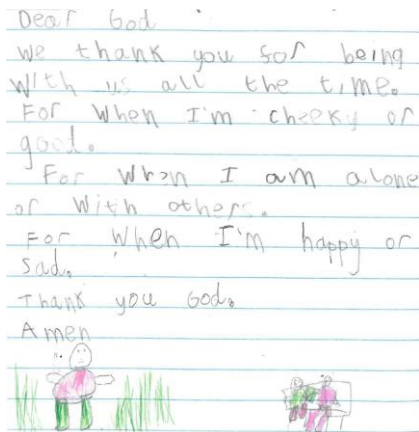 Dear God
we thank you for being
with us all the time.
For when I'm cheeky or
good.
For when I am alone
or with others.
For when I'm happy or
sad.
Thank you God.
Amen